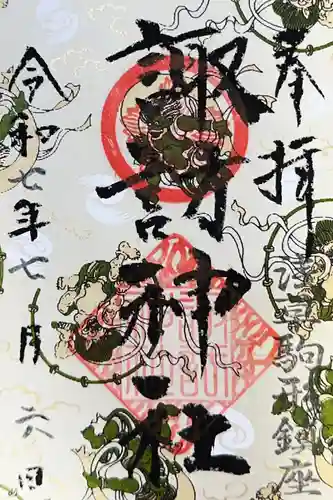 奉拝
淺草駒形鎮座
諏訪神社
令和七年七月六日